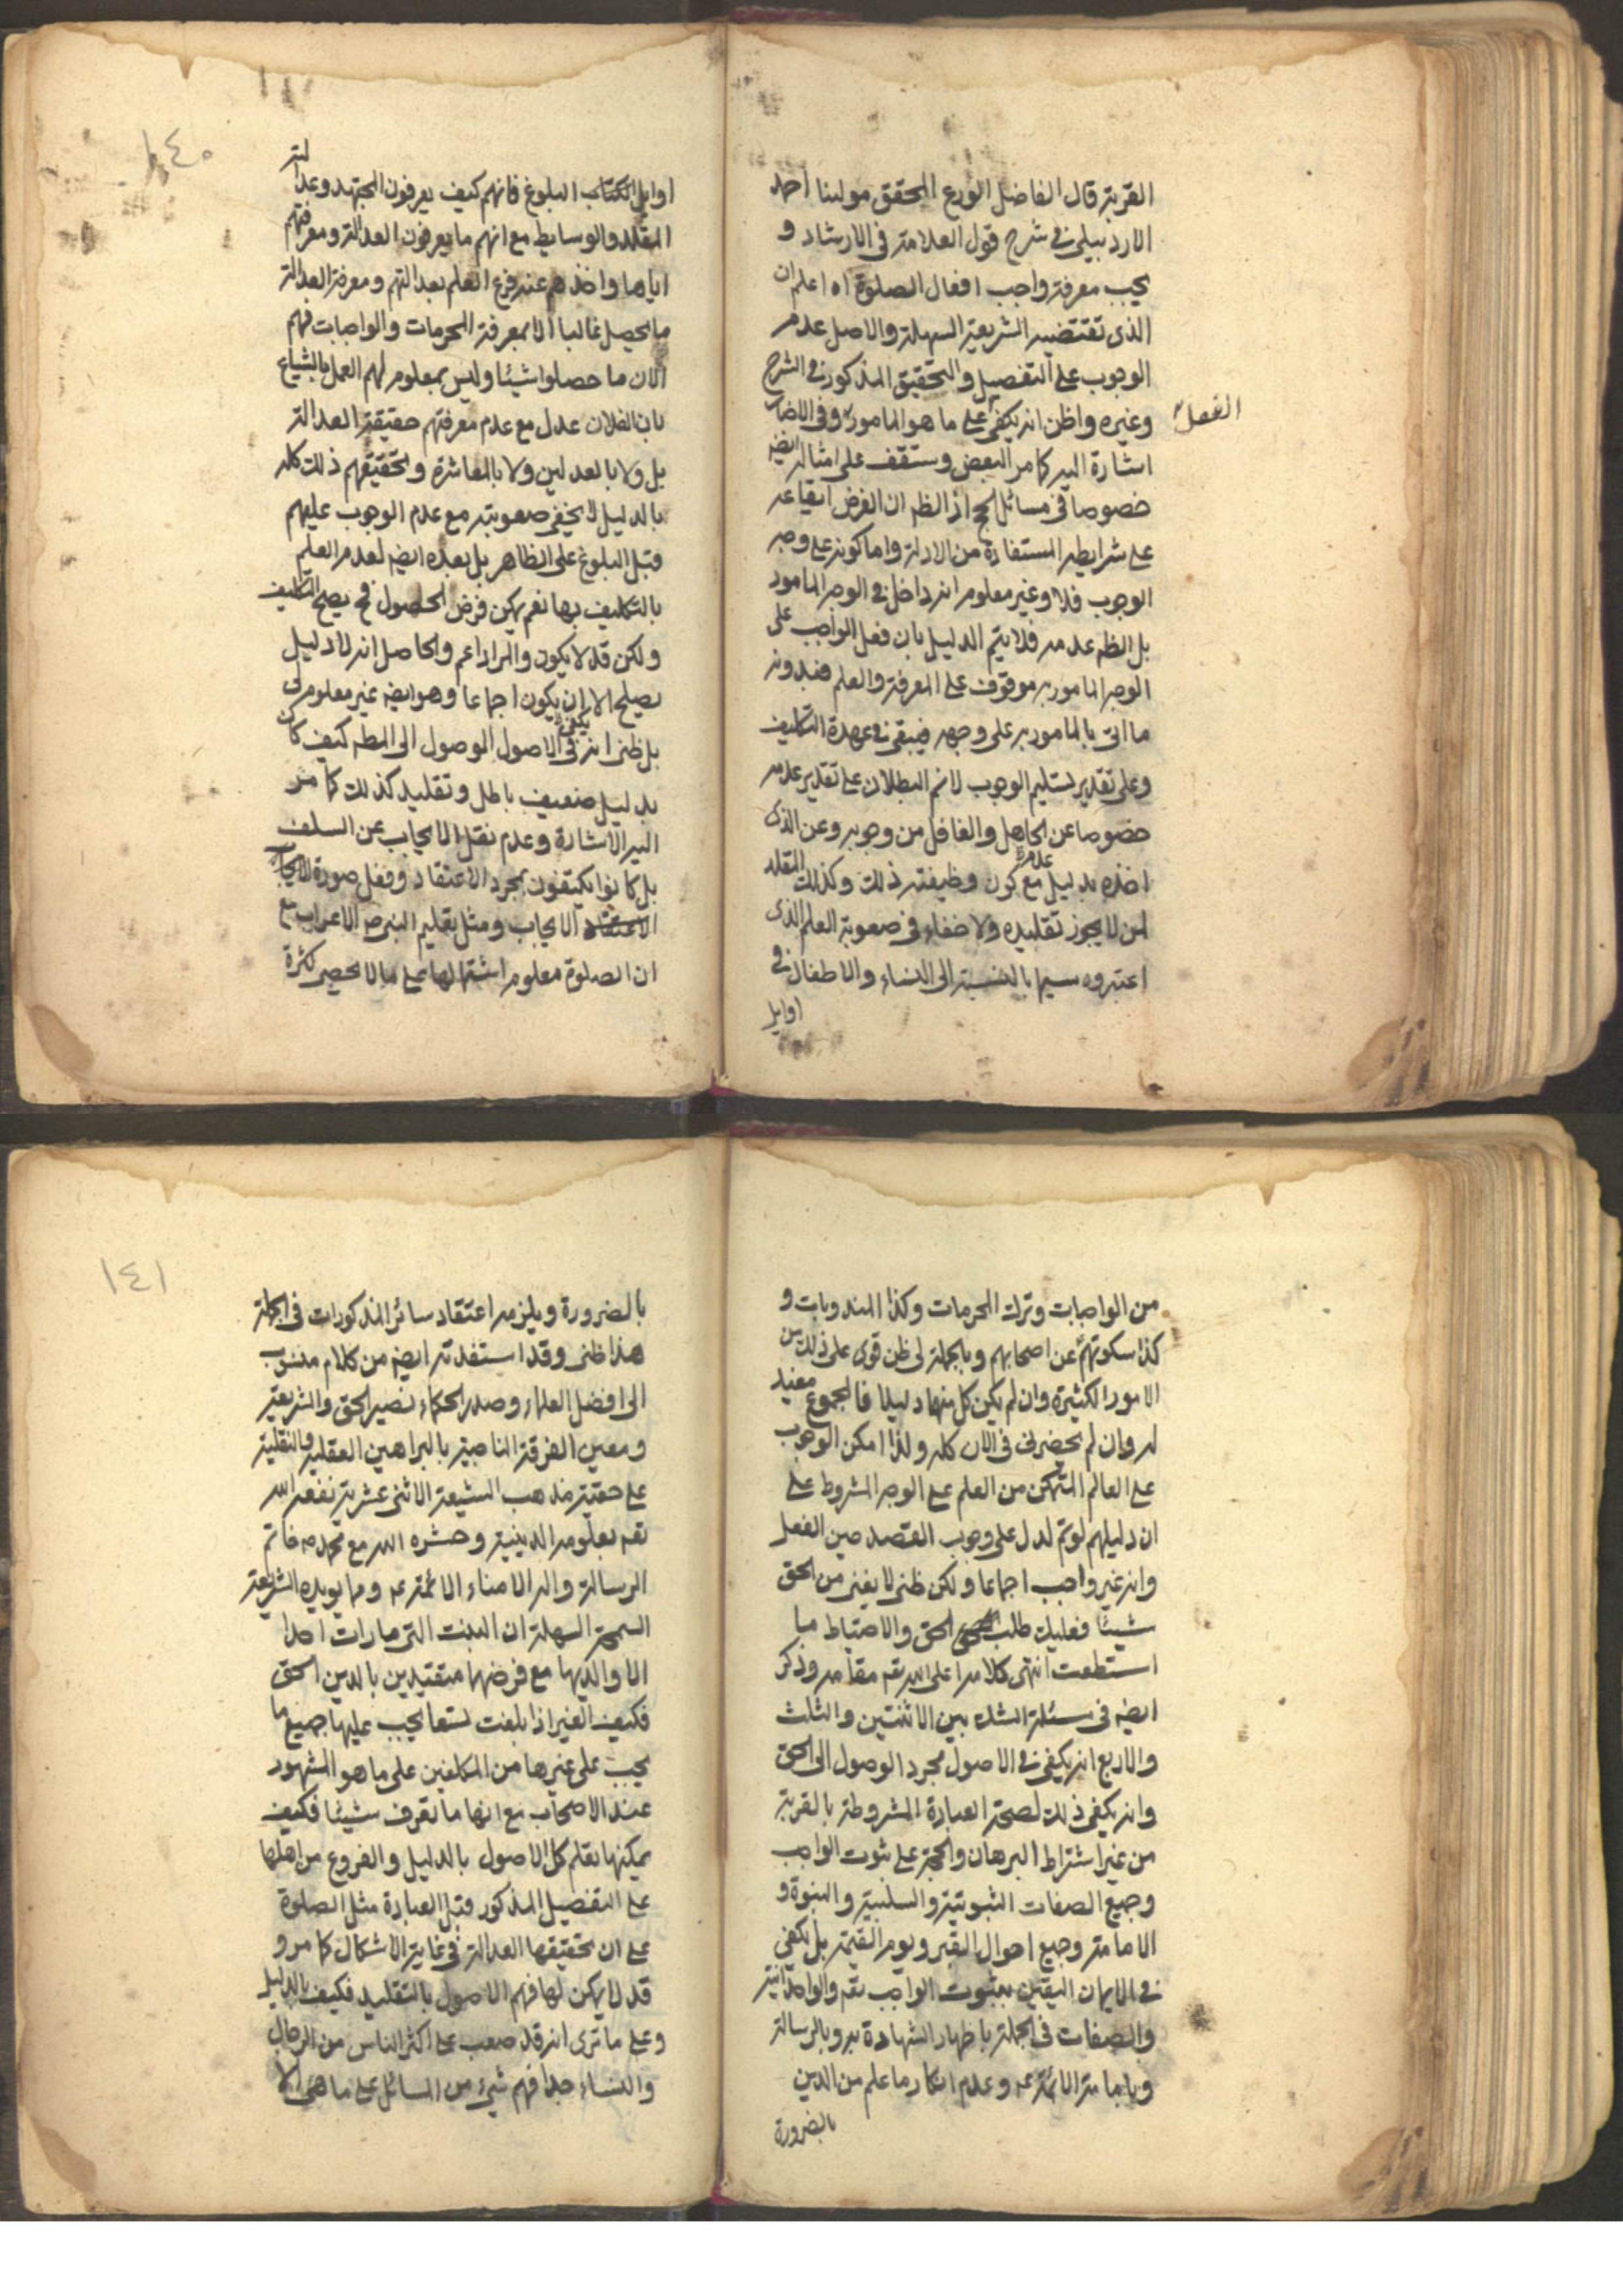 القربة قال الفاضل الورع المحقق مولينا احمد
الاردبيلى فى شرح قول العلامة فى الارشاد و
يجب معرفة واجب افعال الصلوة اه اعلم ان
الذى تقتضيه الشريعة السهلة والاصل عدم
الوجوب على التفصيل والتحقيق المذكور فى الشرح
وغيره واظن انه يكفى الفعل على ما هو المامور وفى الاخبار
اشارة اليه كما مر البعض وستقف على امثاله ايضه
خصوصا فى مسائل الحج اذ الظه ان الغرض ايقاعه
على شرايطه المستفادة من الادلة واما كونه على وجه
الوجوب فلا وغير معلوم انه داخل فى الوجه المامور
بل الظه عدمه فلا يتم الدليل بان فعل الواجب على
الوجه المامور به موقوف على المعرفة والعلم فبدونه
ما اتى بالمامور به على وجهه فيبقى فى عهدة التكليف
وعلى تقدير تسليم الوجوب لانم البطلان على تقدير عدمه
خصوصا عن الجاهل والغافل من وجوبه وعن الذى
اخذه بدليل مع عدم كون وظيفته ذلك وكذلك المقلد
لمن لا يجوز تقليده ولا خفاء فى صعوبة العلم الذى
اعتبروه سيما بالنسبة الى النساء والاطفال فى
اوايل
١٤٠
اوايل الكتاب البلوغ فانهم كيف يعرفون المجتهد وعدالته
المقلد والوسايط مع انهم ما يعرفون العدالة ومعرفتهم
اياها واخذهم عنه فرع العلم بعدالتهم ومعرفة العدالة
ما يحصل غالبا الا بمعرفة المحرمات والواجبات فهم
الان ما حصلوا شيئا وليس بمعلوم لهم العمل بالشياع
بان الفلان عدل مع عدم معرفتهم حقيقة العدالة
بل ولا بالعدلين ولا بالمعاشرة وتحقيقهم ذلك كله
بالدليل لا يخفى صعوبته مع عدم الوجوب عليهم
قبل البلوغ على الظاهر بل بعده ايضه لعدم العلم
بالتكليف بها نعم يمكن فرض الحصول فح يصلح التكليف
ولكن قد لا يكون والمراد اعم والحاصل انه لا دليل
يصلح الا ان يكون اجماعا وهو ايضه غير معلوم لى
بل ظنى انه يكفى فى الاصول الوصول الى المطه كيف كان
بدليل ضعيف باطل وتقليد كذلك كما مر
اليه الاشارة وعدم نقل الايجاب عن السلف
بل كانوا يكتفون بمجرد الاعتقاد وفعل صورة الايجاب
الاعتقاد الايجاب ومثل تعليم النبى ص الاعراب مع
ان الصلوة معلوم اشتمالها على ما لا يحصى كثرة
من الواجبات وترك المحرمات وكذا المندوبات و
كذا سكوتهم عن اصحابهم وبالجملة لى ظن قوى على ذلك من
الامور الكثيرة وان لم يكن كل منها دليلا فالمجموع مفيد
له وان لم يحضرنى فى الان كله ولذا امكن الوجوب
على العالم المتمكن من العلم على الوجه المشروط على
ان دليلهم لو تم لدل على وجوب القصد حين الفعل
وانه غير واجب اجماعا ولكن ظنى لا يغنى من الحق
شيئا فعليك طلب الحق والاحتياط ما
استطعت انتهى كلامه اعلى الله تعه مقامه وذكر
ايضه فى مسئلة الشك بين الاثنتين والثلث
والاربع انه يكفى فى الاصول مجرد الوصول الى الحق
وانه يكفى ذلك لصحة العبادة المشروطة بالقربة
من غير اشتراط البرهان والحجة على ثبوت الواجب
وجميع الصفات الثبوتية والسلبية والنبوة و
الامامة وجميع احوال القبر ويوم القيمة بل يكفى
فى الايمان اليقين بثبوت الواجب تعه والواحدانية
والصفات فى الجملة باظهار الشهادة به وبالرسالة
وبامامة الائمة عه وعدم انكار ما علم من الدين
بالضرورة
١٤١
بالضرورة ويلزمه اعتقاد سائر المذكورات فى الجملة
هذا ظنى وقد استفدته ايضه من كلام منسوب
الى افضل العلماء وصدر الحكماء نصير الحق والشريعة
ومعين الفرقة الناجية بالبراهين العقلية والنقلية
على حقية مذهب الشيعة الاثنى عشرية نفعه الله
تعه بعلومه الدينية وحشره الله مع محمد ص خاتم
الرسالة واله الامناء الائمة عه ومما يويده الشريعة
السمحة السهلة ان البنت التى ما رات احدا
الا والديها مع فرضهما متعبدين بالدين الحق
فكيف الغير اذا بلغت تسعا يجب عليها جميع ما
يجب على غيرها من المكلفين على ما هو المشهور
عند الاصحاب مع انها ما تعرف شيئا فكيف
يمكنها تعلم كل الاصول بالدليل والفروع من اهلها
على التفصيل المذكور قبل العبادة مثل الصلوة
على ان تحقيقها العدالة فى غاية الاشكال كما مر و
قد لا يمكن لها فهم الاصول بالتقليد فكيف بالدليل
وعلى ما ترى انه قد صعب على اكثر الناس من الرجال
والنساء جدا فهم شىء من المسائل على ما هى الا